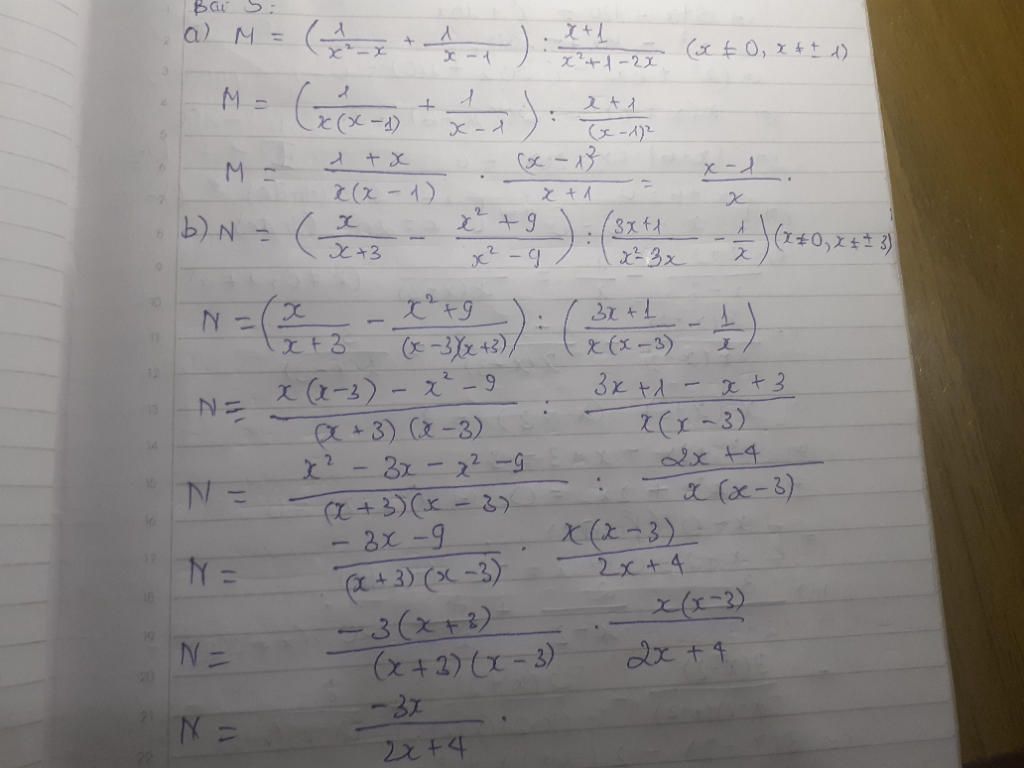 Bài 5:
a) M = (1/(x²-x) + 1/(x-1)) : (x+1)/(x²+1-2x) (x ≠ 0, x ≠ ± 1)
M = (1/(x(x-1)) + 1/(x-1)) : (x+1)/(x-1)²
M = (1+x)/(x(x-1)) · (x-1)²/(x+1) = (x-1)/x.
b) N = (x/(x+3) - (x²+9)/(x²-9)) : ((3x+1)/(x²-3x) - 1/x) (x≠0, x ≠ ± 3)
N = (x/(x+3) - (x²+9)/((x-3)(x+3))) : ((3x+1)/(x(x-3)) - 1/x)
N = (x(x-3) - x² - 9)/((x+3)(x-3)) : (3x+1-x+3)/(x(x-3))
N = (x² - 3x - x² - 9)/((x+3)(x-3)) : (2x+4)/(x(x-3))
N = (-3x-9)/((x+3)(x-3)) · (x(x-3))/(2x+4)
N = (-3(x+3))/((x+3)(x-3)) · (x(x-3))/(2x+4)
N = (-3x)/(2x+4).